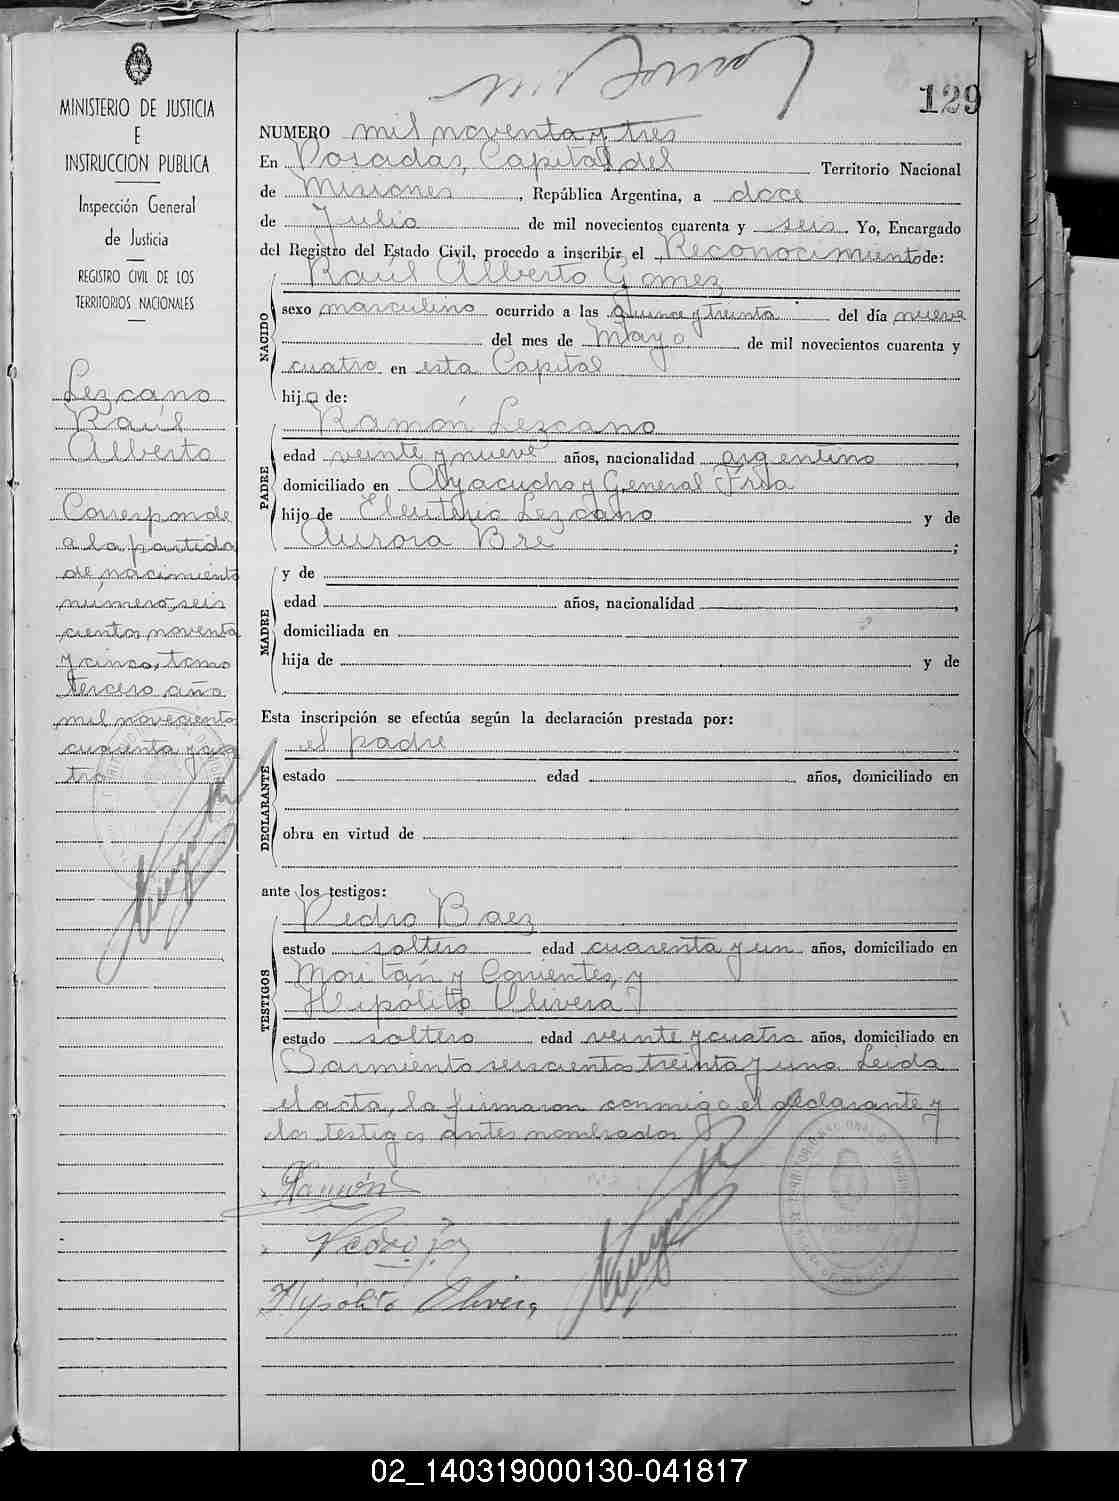 129
MINISTERIO DE JUSTICIA
E
INSTRUCCION PUBLICA
Inspección General
de Justicia
REGISTRO CIVIL DE LOS
TERRITORIOS NACIONALES
Lezcano
Raúl
Alberto
Corresponde
a la partida
de nacimiento
número seis
cientos noventa
y cinco, tomo
tercero año
mil novecientos
cuarenta y cua
tro
NUMERO mil noventa y tres
En Posadas, Capital del Territorio Nacional
de Misiones, República Argentina, a doce
de Julio de mil novecientos cuarenta y seis Yo, Encargado
del Registro del Estado Civil, procedo a inscribir el Reconocimiento de:
Raúl Alberto Gomez
NACIDO
sexo masculino ocurrido a las quince y treinta del día nueve
del mes de Mayo de mil novecientos cuarenta y
cuatro en esta Capital
hijo de:
Ramón Lezcano
PADRE
edad veinte y nueve años, nacionalidad argentino,
domiciliado en Ayacucho y General Fria
hijo de Eleuterio Lezcano y de
Aurora Bre;
MADRE
y de
edad años, nacionalidad,
domiciliada en
hija de y de
Esta inscripción se efectúa según la declaración prestada por:
el padre
DECLARANTE
estado edad años, domiciliado en
obra en virtud de
ante los testigos:
Pedro Baez
TESTIGOS
estado soltero edad cuarenta y un años, domiciliado en
Moritán y Corrientes, y
Hipólito Olivera
estado soltero edad veinte y cuatro años, domiciliado en
Sarmiento seiscientos treinta y uno. Leida
el acta, la firmaron conmigo el declarante y
los testigos antes nombrados
Ramón
Pedro
Hypólito Olivera
02_140319000130-041817